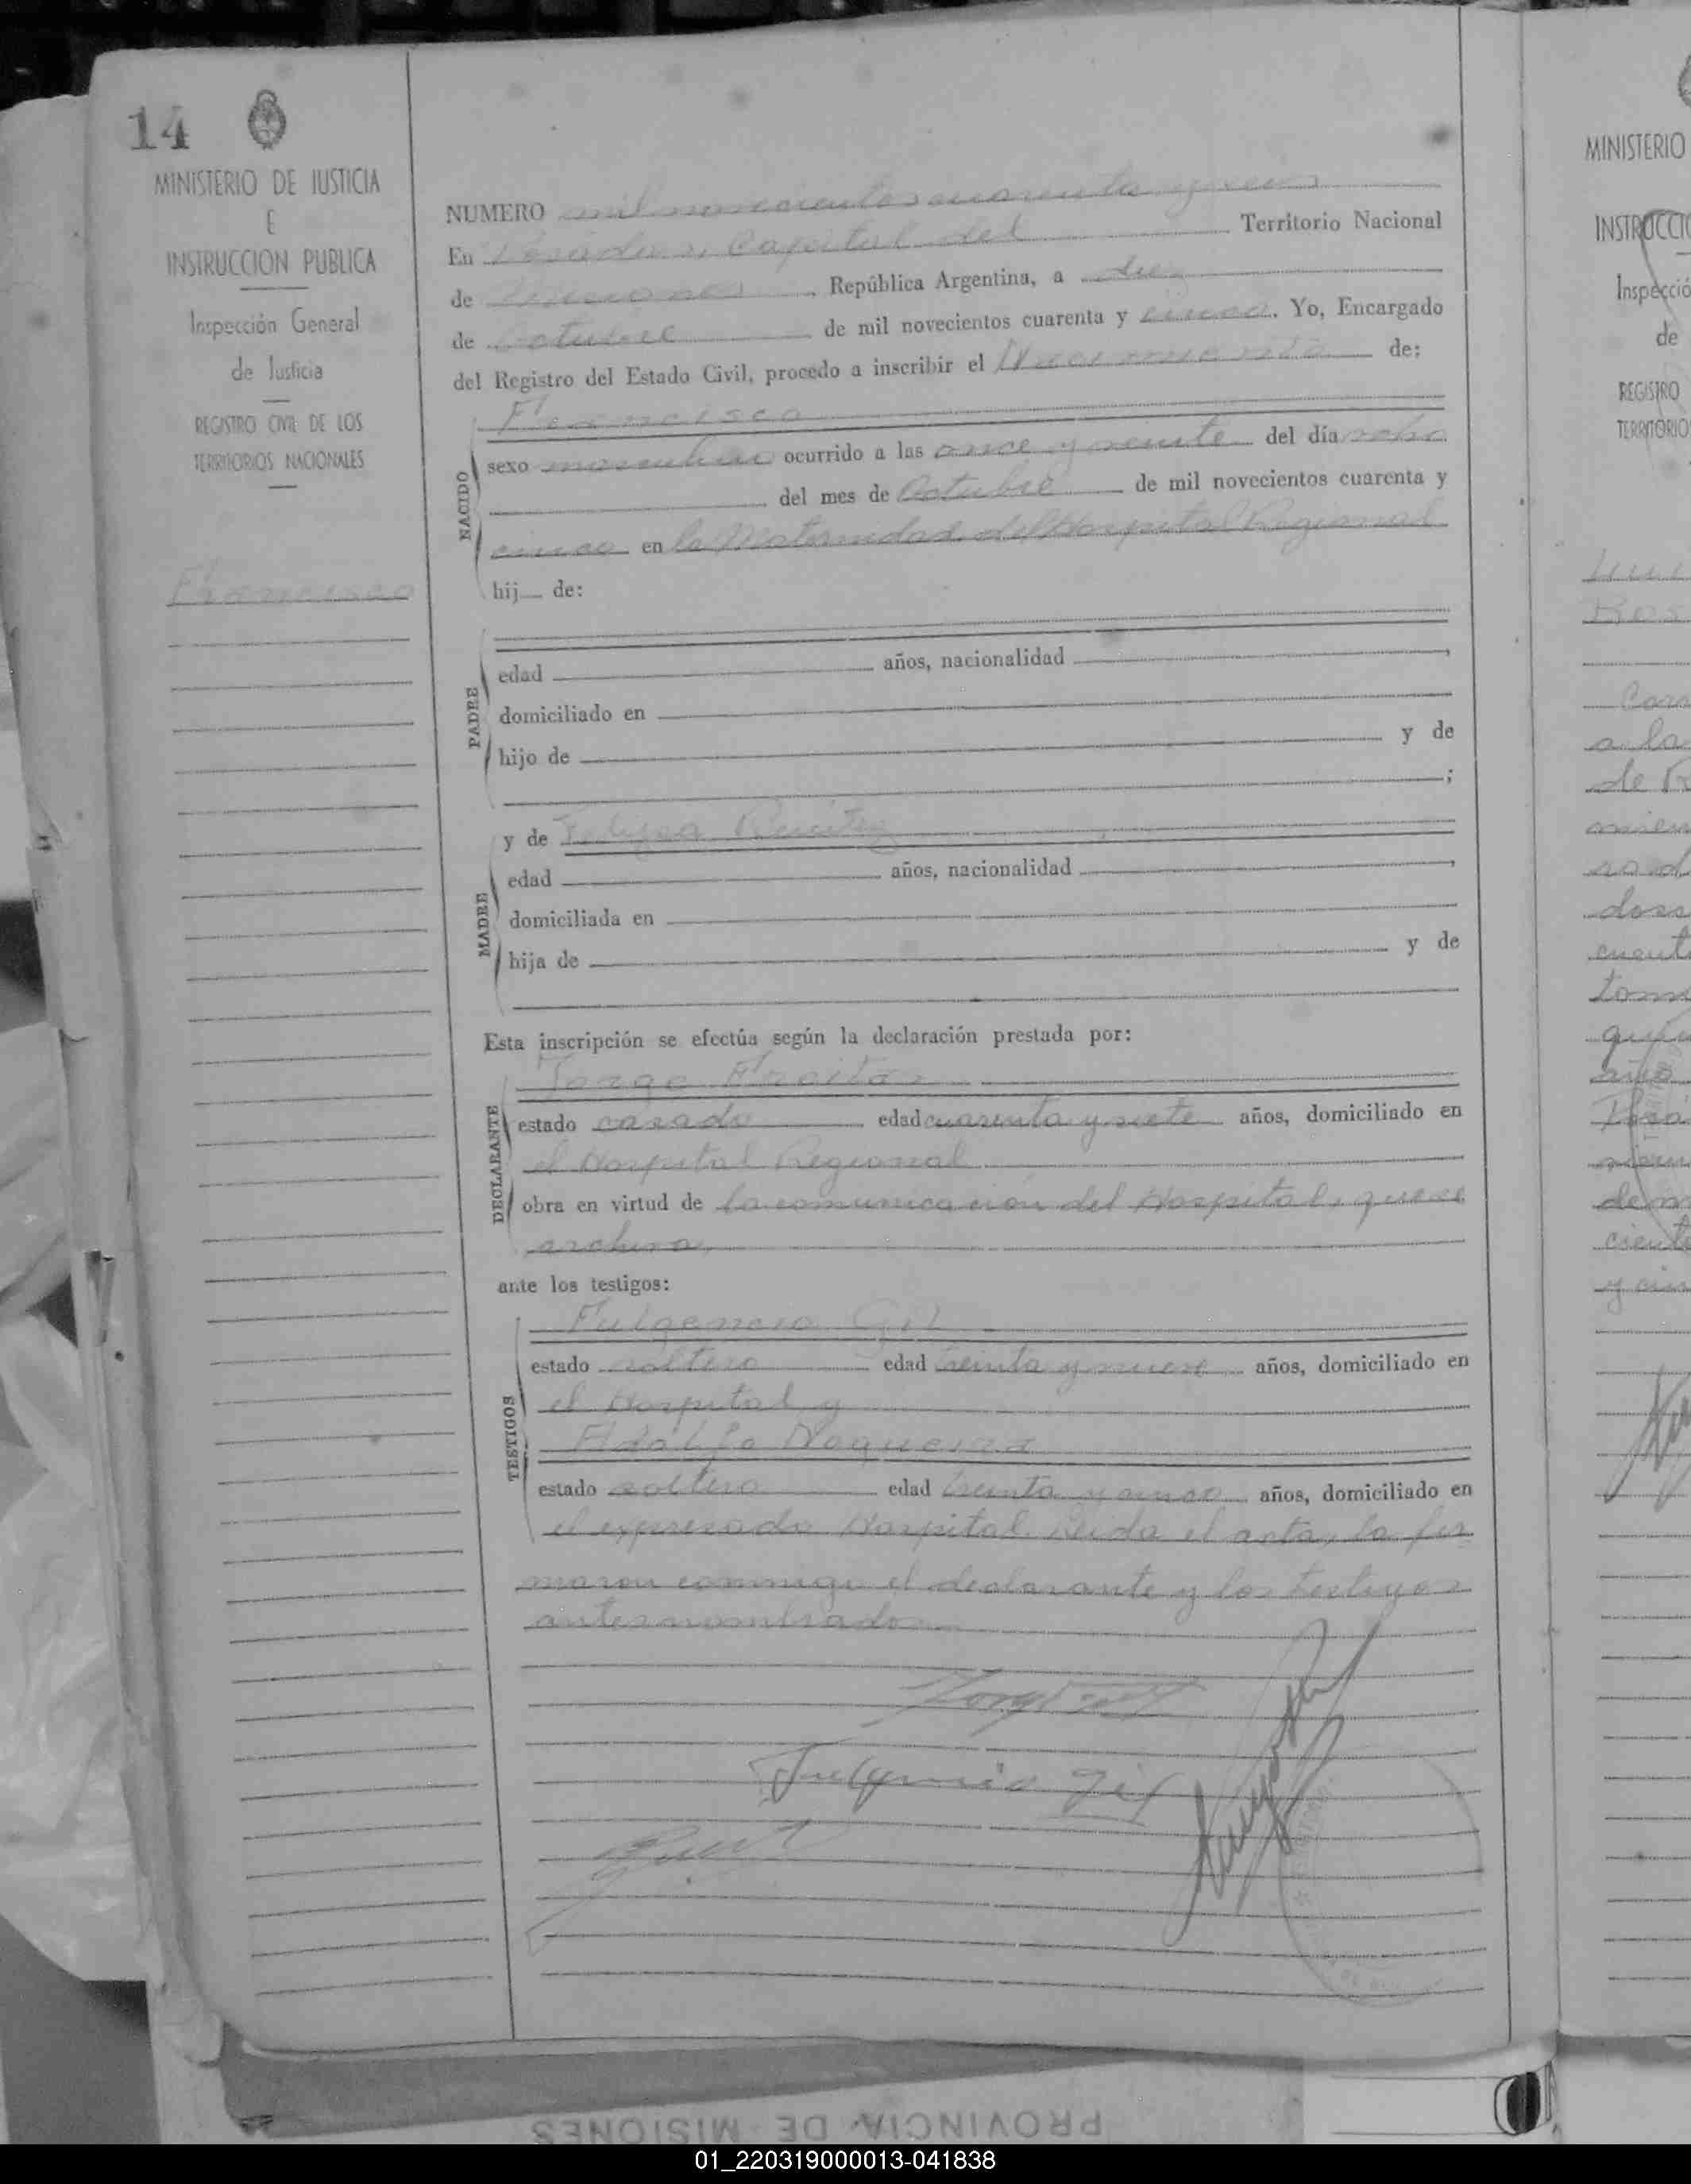 14
MINISTERIO DE JUSTICIA
E
INSTRUCCION PUBLICA
Inspección General
de Justicia
REGISTRO CIVIL DE LOS
TERRITORIOS NACIONALES
Francisco
NUMERO mil novecientos cuarenta y
En Posadas, Capital del Territorio Nacional
de Misiones, República Argentina, a diez
de Octubre de mil novecientos cuarenta y cinco. Yo, Encargado
del Registro del Estado Civil, procedo a inscribir el Nacimiento de:
NACIDO
Francisco
sexo masculino ocurrido a las once y veinte del día ocho
del mes de Octubre de mil novecientos cuarenta y
cinco en la Maternidad del Hospital Regional
hij de:
PADRE
edad años, nacionalidad ,
domiciliado en
hijo de y de
;
MADRE
y de
edad años, nacionalidad ,
domiciliada en
hija de y de
Esta inscripción se efectúa según la declaración prestada por:
DECLARANTE
Jorge Freitas
estado casado edad cuarenta y siete años, domiciliado en
el Hospital Regional
obra en virtud de la comunicación del Hospital, que se
archiva,
ante los testigos:
TESTIGOS
Fulgencio Gil
estado soltero edad treinta y nueve años, domiciliado en
el Hospital y
Adolfo Nogueira
estado soltero edad treinta y cinco años, domiciliado en
el expresado Hospital. Leida el acta, la fir
maron conmigo el declarante y los testigos
antes nombrados
Fulgencio Gil
MINISTERIO
INSTRUCCIO
Inspecció
de
REGISTRO
TERRITORIO
a la
de
cuent
tom
de n
cient
PROVINCIA DE MISIONES
01_220319000013-041838